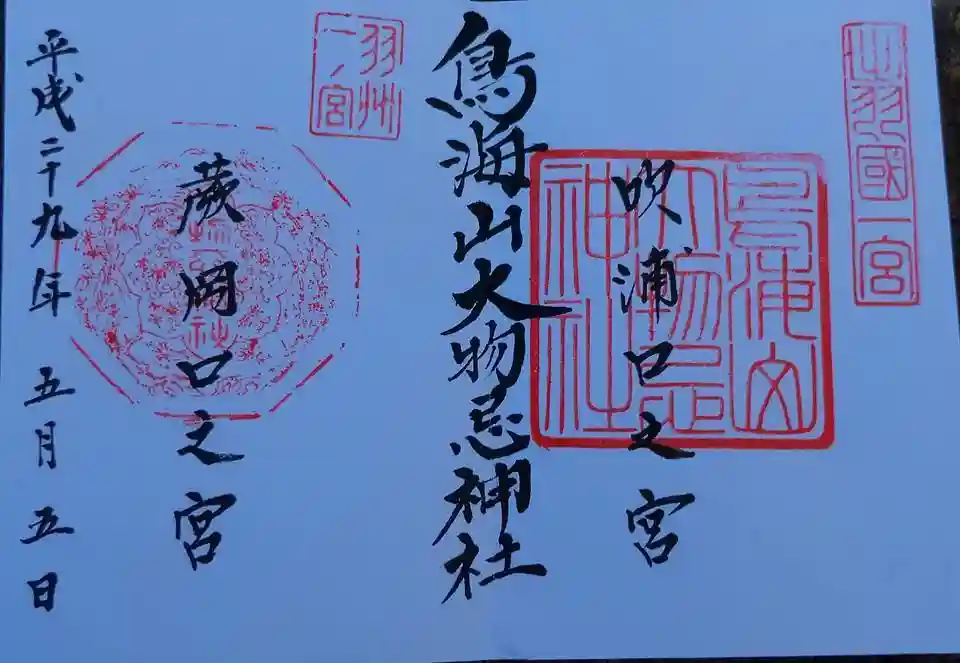 出羽國一宮
吹浦口之宮
鳥海山大物忌神社
鳥海山
大物忌
神社
羽州
一ノ宮
蕨岡口之宮
平成二十九年 五月 五日